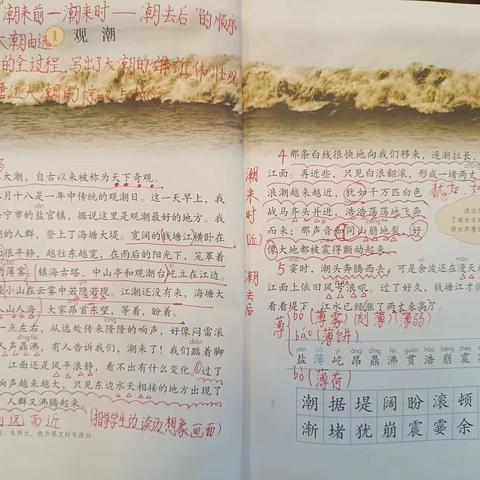 "潮来前—潮来时——潮去后"的顺序
大潮由远
的全过程,写出了大潮的雄雄伟、壮观
1 观 潮
大潮,自古以来被称为天下奇观。
月十八是一年中传统的观潮日。这一天早上,我
宁市的盐官镇,据说这里是观潮最好的地方。我
的人群,登上了海塘大堤。宽阔的钱塘江横卧在
很平静,越往东越宽,在雨后的阳光下,笼罩着
的薄雾。镇海古塔、中山亭和观潮台屹立在江边。
小山在云雾中若隐若现。江潮还没有来,海塘大
人山人海。大家昂首东望,等着,盼着。
一点左右,从远处传来隆隆的响声,好像闷雷滚
人声鼎沸,有人告诉我们,潮来了!我们踮着脚
江面还是风平浪静,看不出有什么变化。过了
响声越来越大,只见东边水天相接的地方出现了
人群又沸腾起来。
由远而近
(指导学生边读边想象画面)
潮来时
近
潮去后
4 那条白线很快地向我们移来,逐渐拉长,
江面。再近些,只见白浪翻滚,形成一堵两丈
浪潮越来越近,犹如千万匹白色
战马齐头并进,浩浩荡荡地飞奔
而来;那声音如同山崩地裂,好
像大地都被震得颤动起来。
犹如
5 霎时,潮头奔腾西去,可是余波还在漫天
江面上依旧风号浪吼。过了好久,钱塘江才
看看堤下,江水已经涨了两丈来高了。
薄
bó(薄雾)(刻薄)(薄弱)
báo(薄饼)
bò(薄荷)
盐 薄 屹 昂 鼎 沸 贯 浩 崩 震 霎
潮 据 堤 阔 盼 滚 顿
渐 堵 犹 崩 震 霎 余